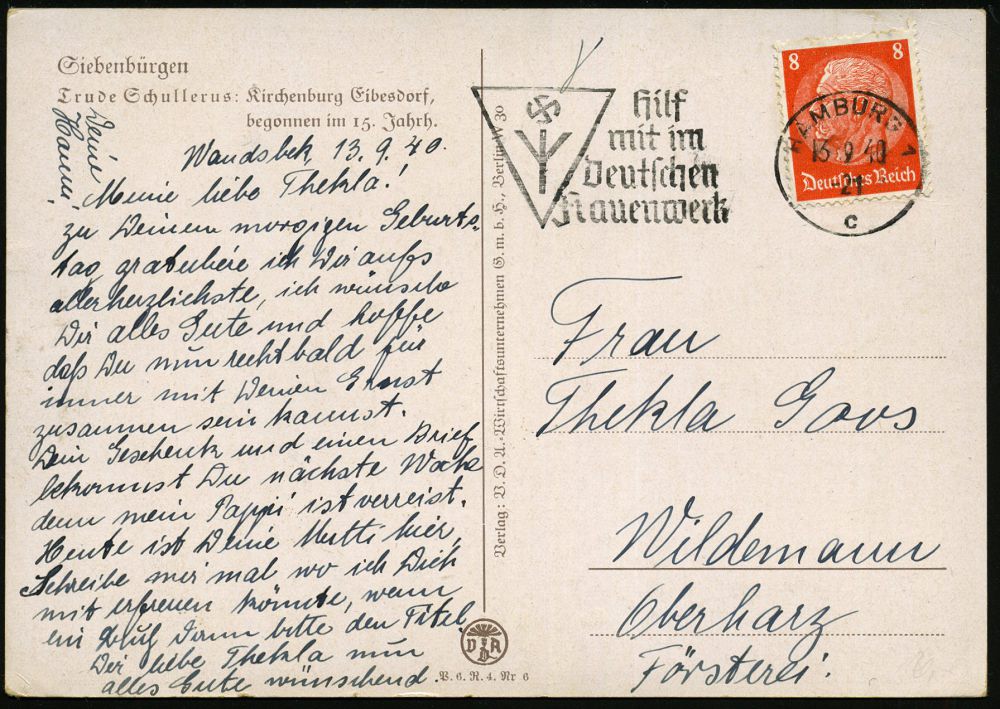 Siebenbürgen
Trude Schullerus: Kirchenburg Eibesdorf,
begonnen im 15. Jahrh.
Wandsbek, 13.9.40.
Meine liebe Thekla!
zu Deinem morgigen Geburts-
tag gratuliere ich Dir aufs
allerherzlichste, ich wünsche
Dir alles Gute und hoffe
daß Du nun recht bald für
immer mit Deinen Ernst
zusammen sein kannst.
Dein Geschenk und einen Brief
bekommst Du nächste Woche
denn mein Pappi ist verreist.
Heute ist Deine Mutti hier,
Schreibe mir mal wo ich Dich
mit erfreuen könnte, wenn
ein Buch dann bitte den Titel,
Dir liebe Thekla nun
alles Gute wünschend.
Deine
Hanni!
Verlag: V.D.A.-Wirtschaftsunternehmen G.m.b.H., Berlin W 30
VDA
V. 6. R. 4. Nr 6
Hilf
mit im
Deutschen
Frauenwerk
8 8
Deutsches Reich
HAMBURG 1
13.9.40
-21
c
Frau
Thekla Goos
Wildemann
Oberharz
Försterei.